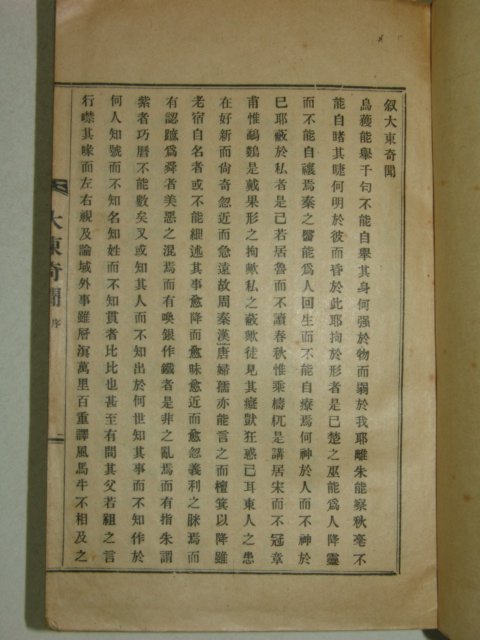 叙大東奇聞
烏獲能舉千勻不能自舉其身何强於物而弱於我耶離朱能察秋毫不
能自睹其睫何明於彼而昏於此耶拘於形者是已楚之巫能爲人降靈
而不能自禳焉秦之醫能爲人回生而不能自療焉何神於人而不神於
已耶蔽於私者是已若居魯而不讀春秋惟乘檮杌是講居宋而不冠章
甫惟鷸鷄是戴果形之拘歟私之蔽歟徒見其癡獃狂惑已耳東人之患
在好新而尙奇忽近而急遠故周秦漢唐婦孺亦能言之而檀箕以降雖
老宿自名者或不能細述其事愈降而愈昧愈近而愈忽義利之眯焉而
有認蹠爲舜者美惡之混焉而有喚銀作鐵者是非之亂焉而有指朱謂
紫者巧曆不能數矣又或知其人而不知出於何世知其事而不知作於
何人知號而不知名知姓而不知貫者比比也甚至有問其父若祖之言
行噤其喙而左右視及論域外事雖層溟萬里百重譯風馬牛不相及之
大東奇聞
序
一